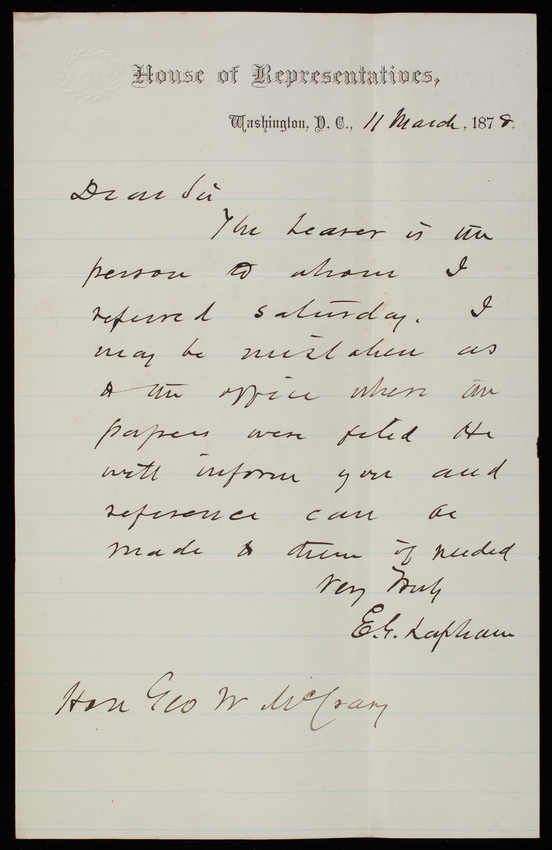 House of Representatives,
Washington, D. C., 11 March, 1878.
Dear Sir
The bearer is the
person to whom I
referred saturday. I
may be mistaken as
to the office where the
papers were filed He
will inform you and
reference can be
made to them if needed
Very Truly
E. G. Lapham
Hon Geo W McCrary